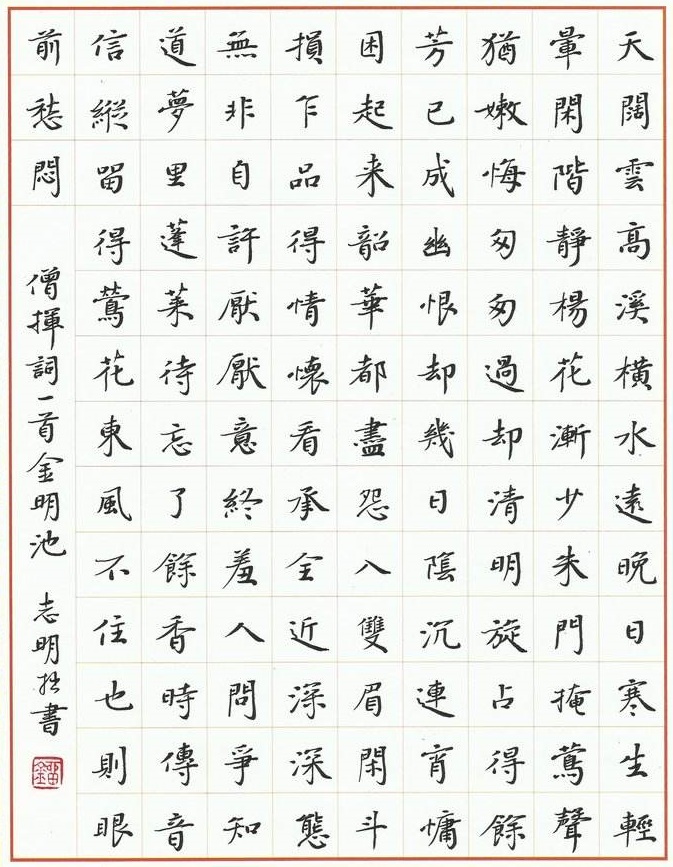 天闊雲高溪橫水遠晚日寒生輕
暈閑階靜楊花漸少朱門掩鶯聲
猶嫩悔匆匆過却清明旋占得餘
芳已成幽恨却幾日陰沉連宵慵
困起来韶華都盡怨入雙眉閑斗
損乍品得情懷看承全近深深態
無非自許厭厭意終羞人問爭知
道夢里蓬萊待忘了餘香時傳音
信縱留得鶯花東風不住也則眼
前愁悶
僧揮詞一首金明池 志明拙書